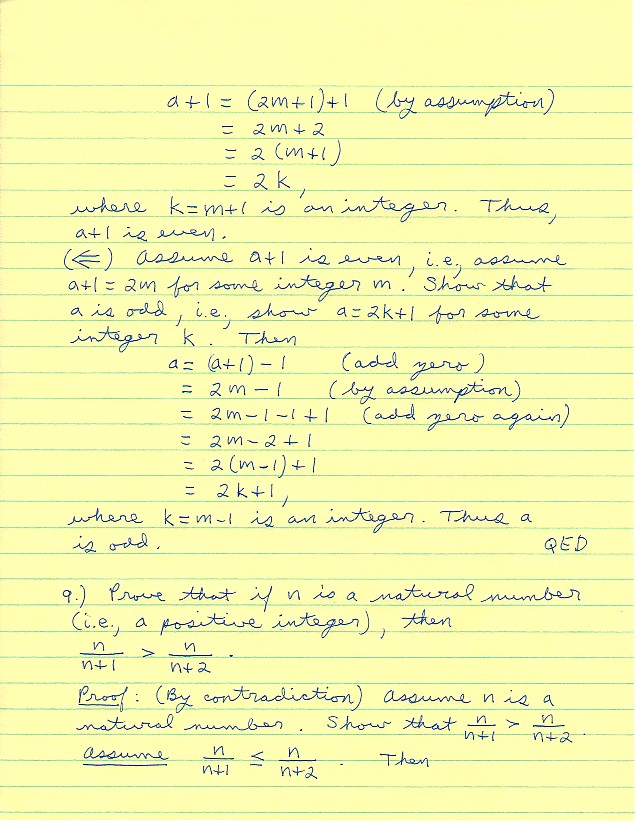 a+1 = (2m+1)+1 (by assumption)
= 2m+2
= 2(m+1)
= 2k,
where k=m+1 is an integer. Thus,
a+1 is even.
(⇐) Assume a+1 is even, i.e., assume
a+1=2m for some integer m. Show that
a is odd, i.e., show a=2k+1 for some
integer k. Then
a= (a+1)-1 (add zero)
= 2m-1 (by assumption)
= 2m-1-1+1 (add zero again)
= 2m-2+1
= 2(m-1)+1
= 2k+1,
where k=m-1 is an integer. Thus a
is odd. QED
9.) Prove that if n is a natural number
(i.e., a positive integer), then
n/(n+1) > n/(n+2) .
Proof: (By contradiction) Assume n is a
natural number. Show that n/(n+1) > n/(n+2).
Assume n/(n+1) ≤ n/(n+2) . Then